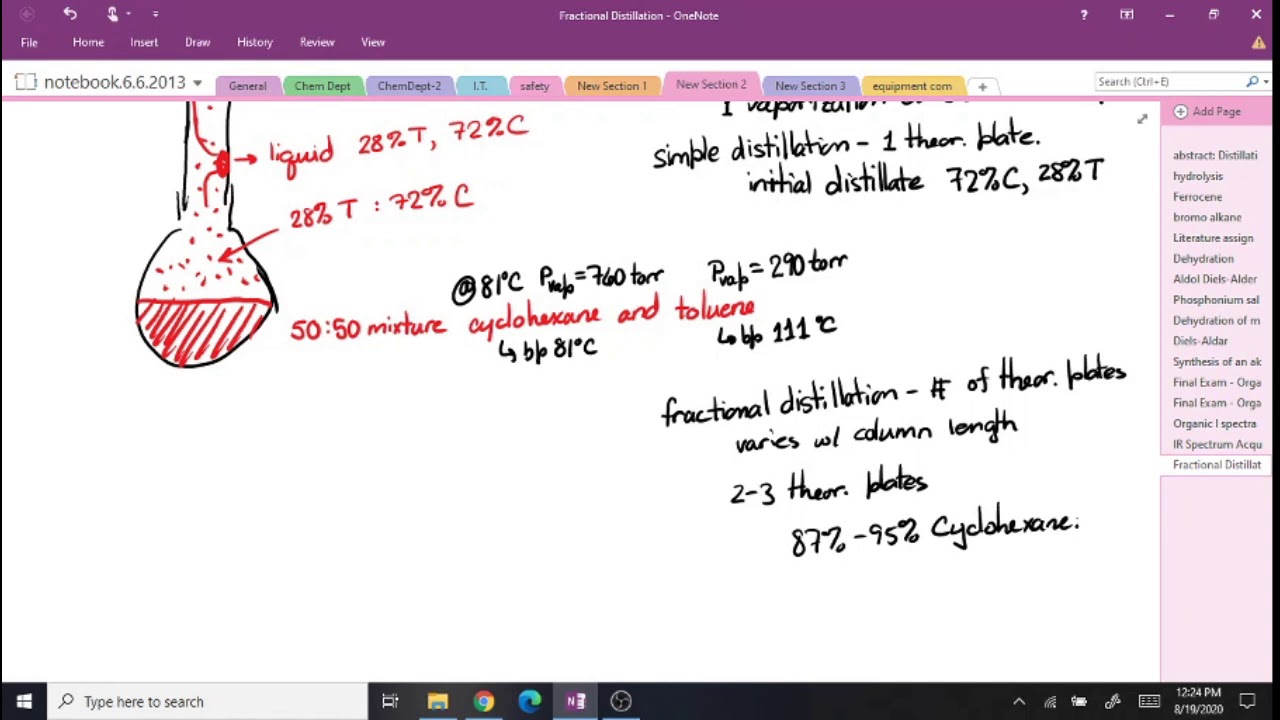 Fractional Distillation - OneNote
File Home Insert Draw History Review View
notebook.6.6.2013 General Chem Dept ChemDept-2 I.T. safety New Section 1 New Section 2 New Section 3 equipment com Search (Ctrl+E)
Add Page
1 vaporization
liquid 28%T, 72%C
simple distillation - 1 theor. plate.
initial distillate 72%C, 28%T
28%T : 72%C
@81°C Pvap=760torr Pvap=290torr
50:50 mixture cyclohexane and toluene
↳ b/p 81°C ↳ b/p 111°C
fractional distillation - # of theor. plates
varies w/ column length
2-3 theor. plates
87% - 95% Cyclohexane.
abstract: Distillati
hydrolysis
Ferrocene
bromo alkane
Literature assign
Dehydration
Aldol Diels-Alder
Phosphonium sal
Dehydration of m
Diels-Aldar
Synthesis of an ak
Final Exam - Orga
Final Exam - Orga
Organic I spectra
IR Spectrum Acqu
Fractional Distillat
Type here to search
12:24 PM
8/19/2020